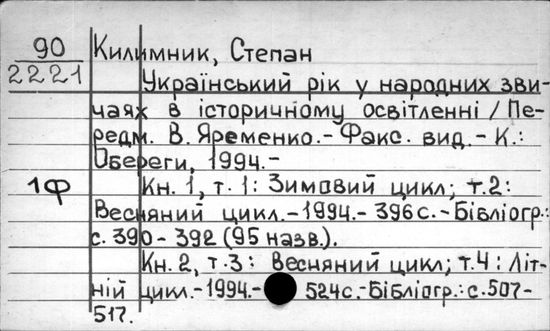 90 Килимник, Степан
2221 Український рік у народних зви-
чаях в історичному освітленні / Пе-
редм. В. Яременко.- Факс. вид.- К.:
Обереги, 1994.-
1ф Кн. 1, т. 1: Зимовий цикл; т.2:
Весняний цикл.-1994.- 396с.-Бібліогр.:
с. 390-392 (95 назв.).
Кн. 2, т.3: Весняний цикл; т.4: Літ-
ній цикл.-1994.- 524с.-Бібліогр.: с.507-
517.